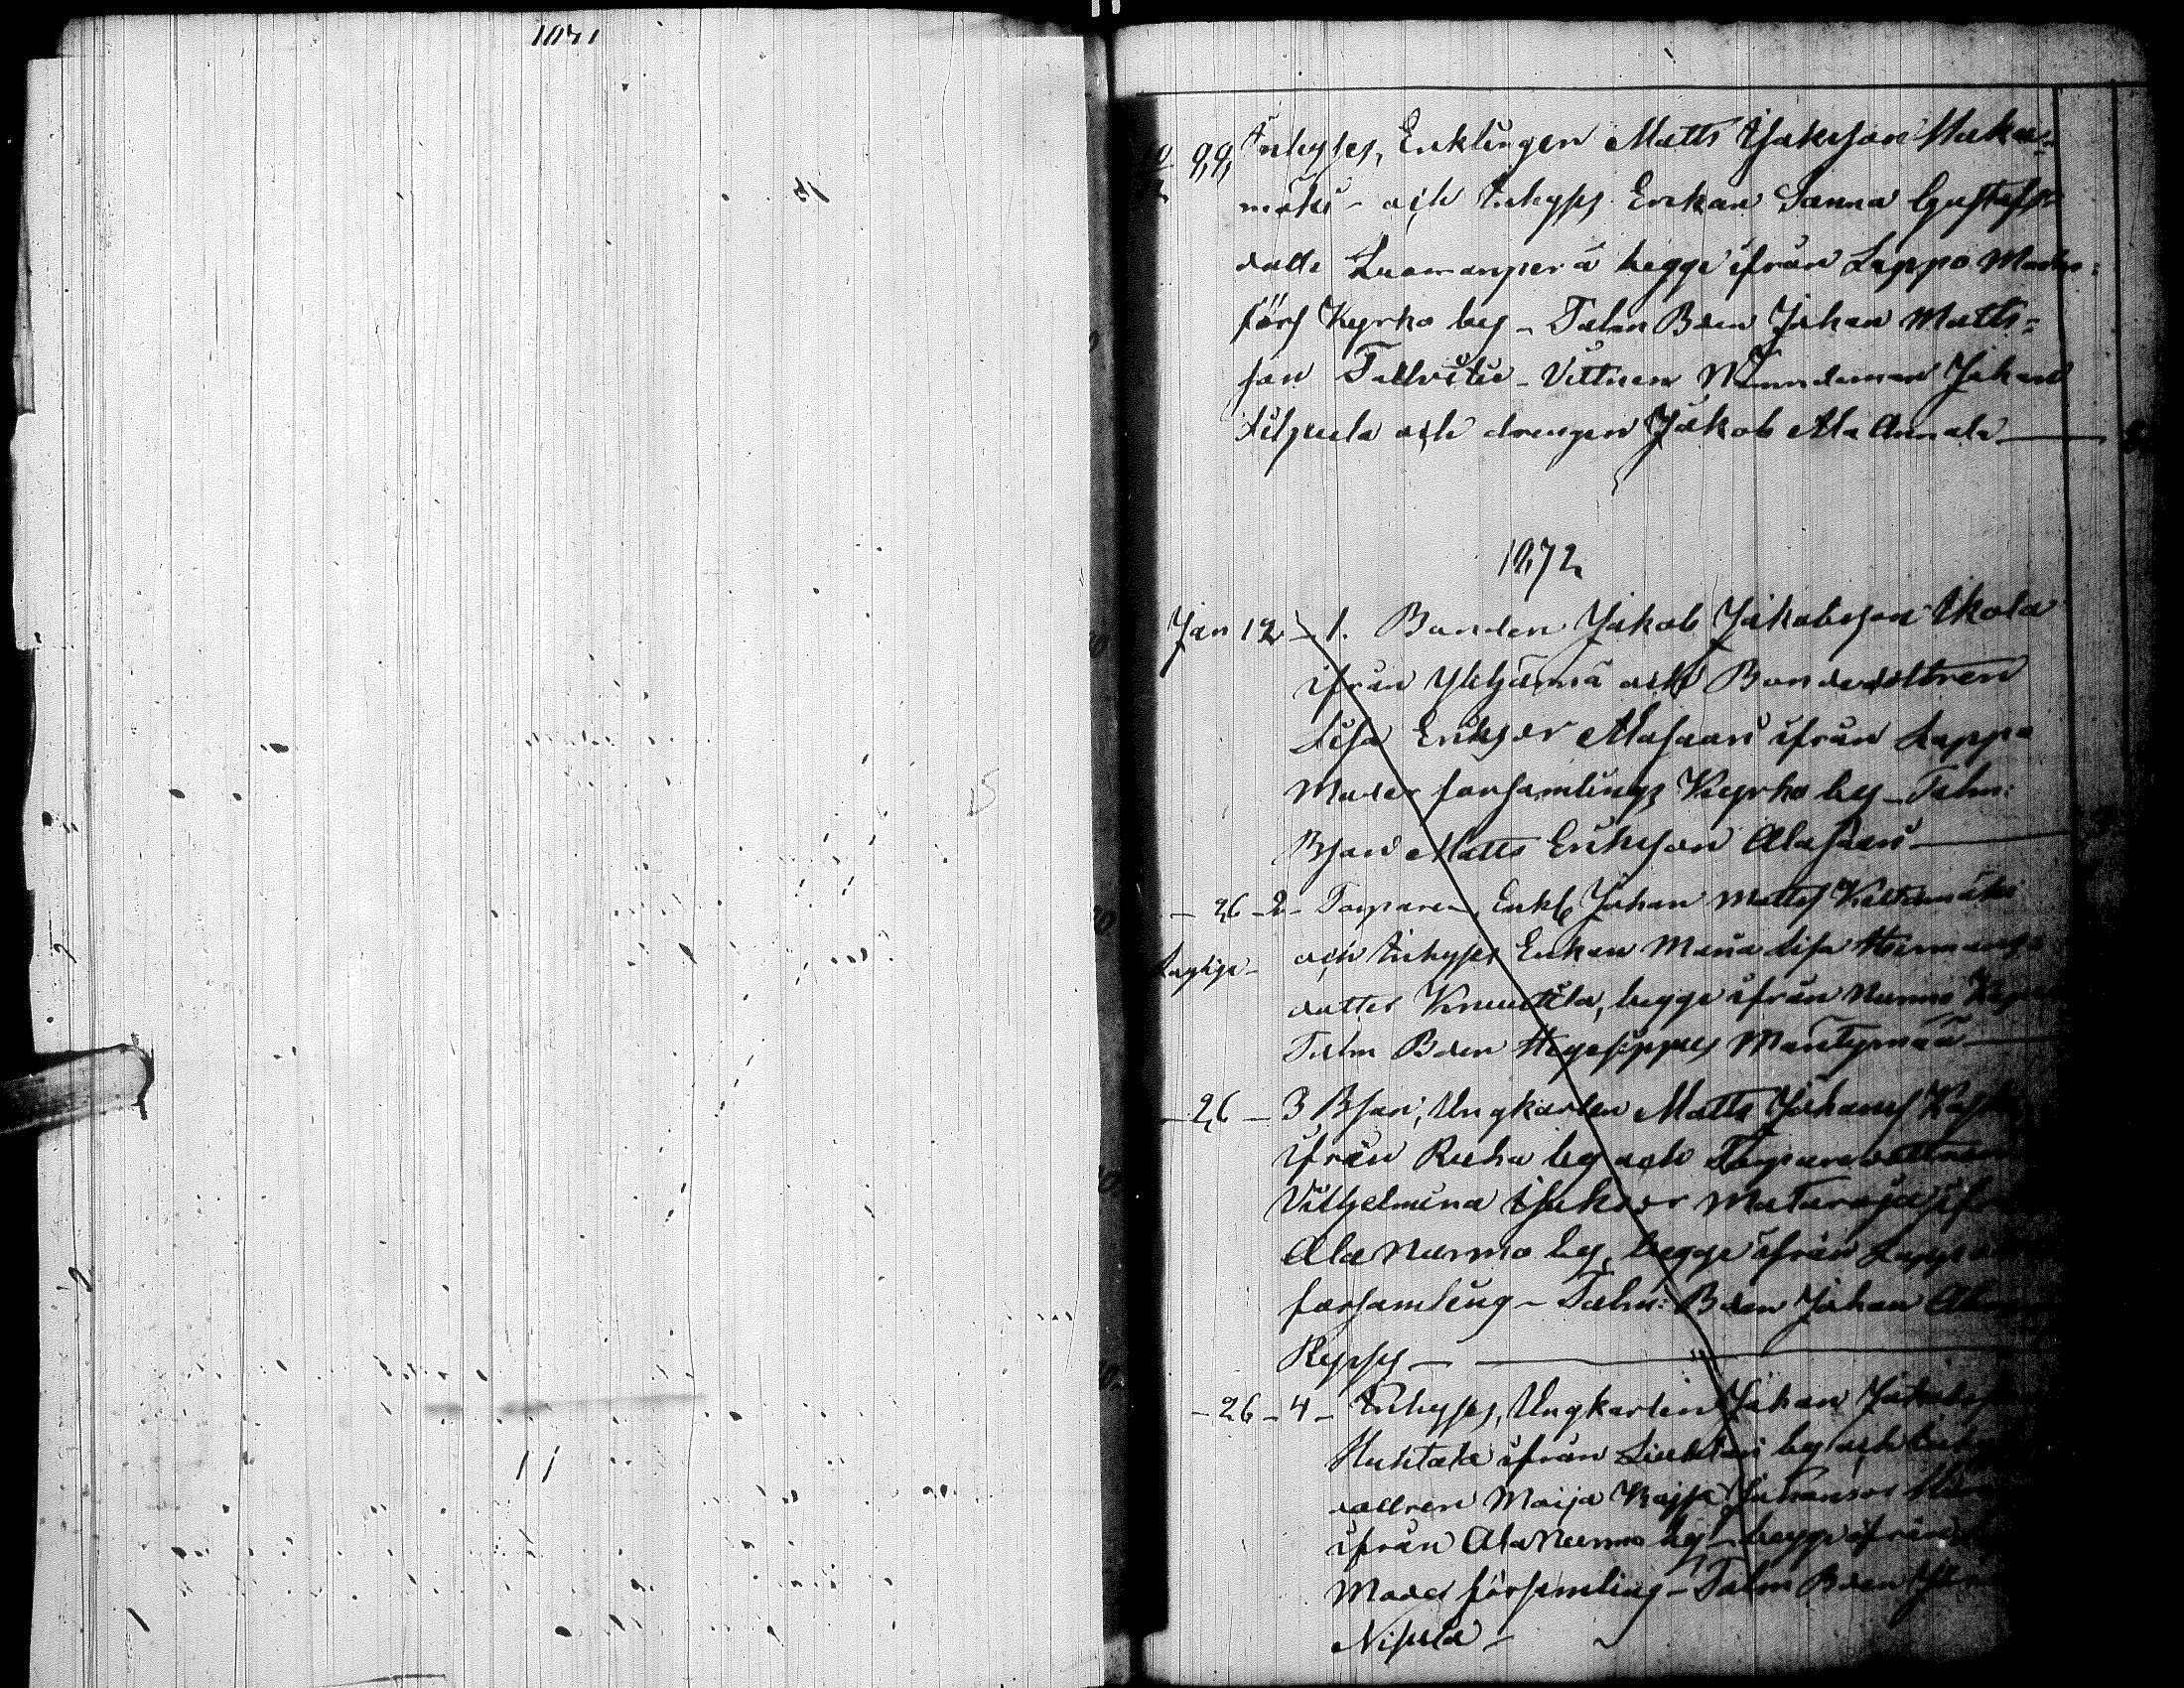 88 Inhyses, Enklingen Matts Isaksson Haka-
mäki - och Inhyses Enkan Sanna Gustafs
dotter Luomanperä begge ifrån Lappo Moder
förs Kyrko by - Talm Bden Johan Matts=
son Tallvitie - Vittnen Nämndeman Johan
Filpula och drengen Jakob Ala Annala
1872
Jan 12 - 1. Bonden Jakob Jakobsson Ikola
ifrån Ylihärmä och Bondedottren
Lisa Eriksdr Alasaari ifrån Lappo
Moder församlings Kyrko by - Talm:
Bson Matts Eriksson Alasaari
- 26 - 2 - Torparen, Enkl Johan Matts Keltamäki
och Inhyses Enkan Maria Lisa Hermans
dotter Knuuttila, begge ifrån Nurmo
Talm Bden Hegesippus Mäntymaa
- 26 - 3 Bson, Ungkarlen Matts Johans
ifrån Ruha by och Torparedottren
Vilhelmina Isaksdr Mataroja
Ala Nurmo by, begge ifrån Lappo
församling - Talm: Bden Johan
Repses
- 26 - 4 - Inhyses, Ungkarlen Johan
Huhtala ifrån Liuhtari by och
dottren Maija Kajsa Johansdr
ifrån Ala Nurmo by - begge ifrån
Moder församling - Talm Bden
Nisula -